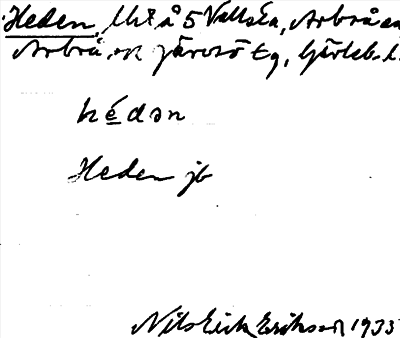 Heden, lht å 5 Vallsta, Arbrå sn
Arbrå ok Järvsö tg, Gävleb. l.
hédən
Heden jb
Nils Erik Eriksson 1935